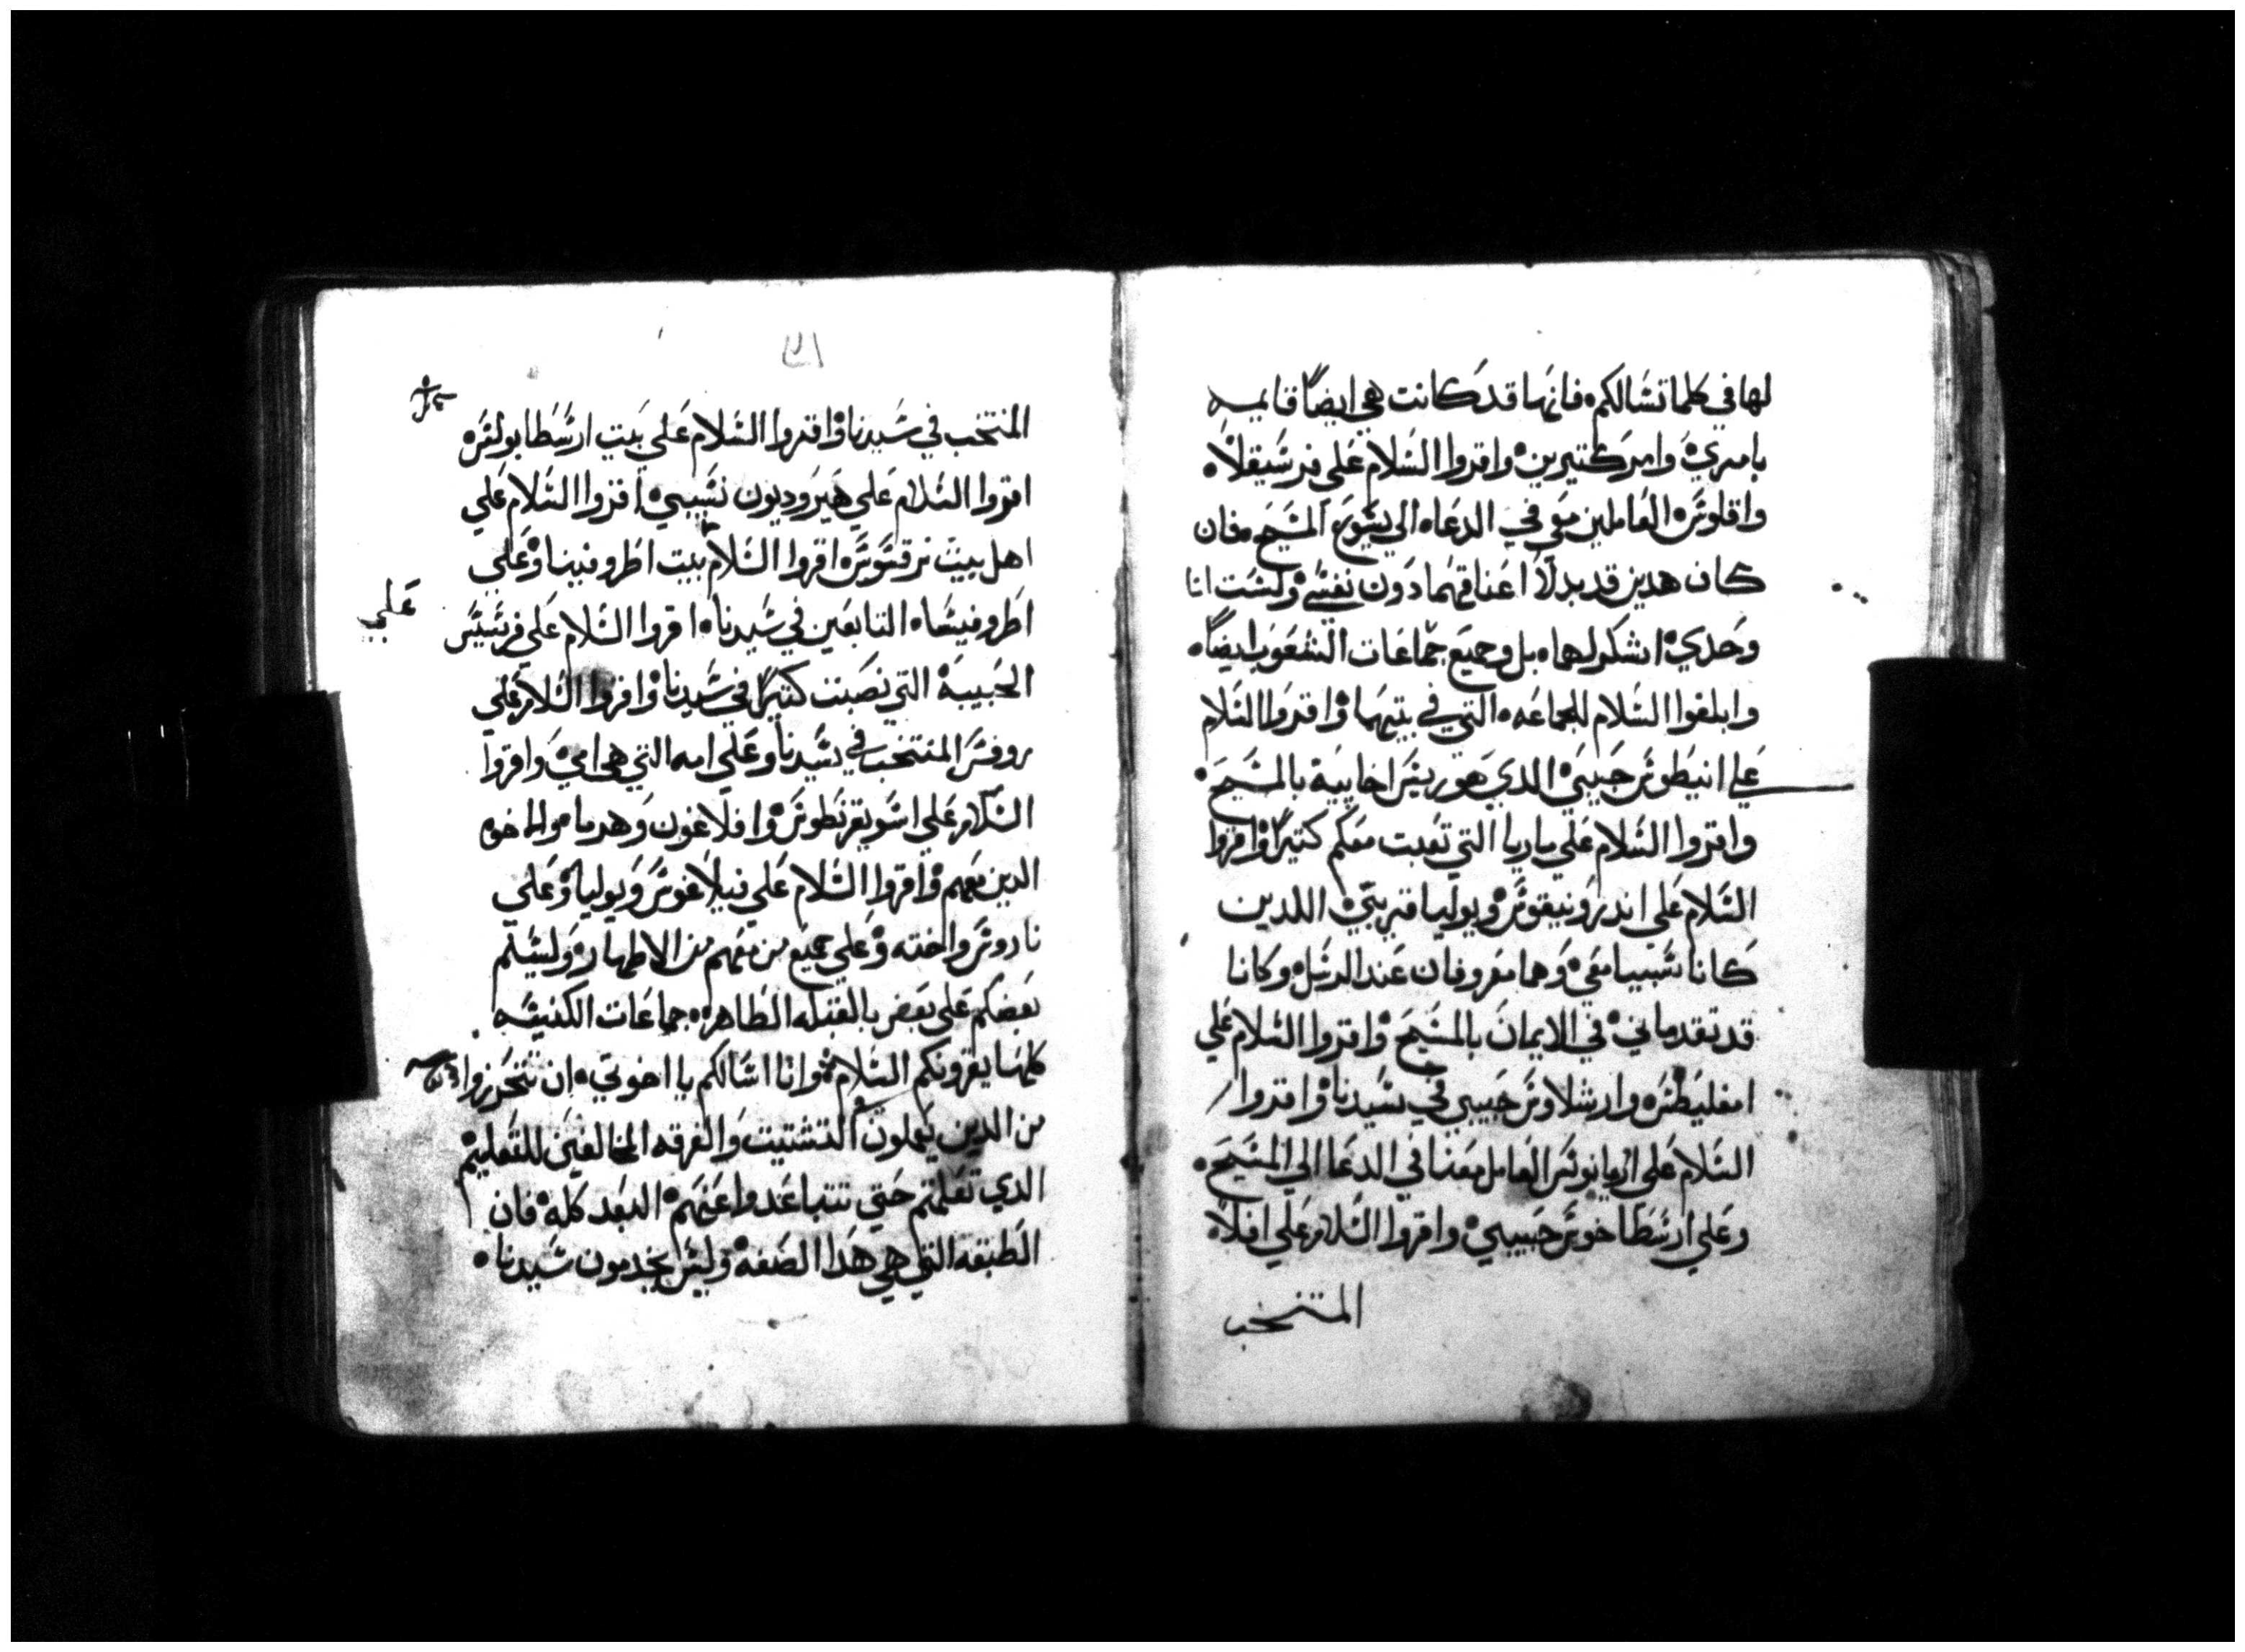 لها في كلما تسالكم. فانها قد كانت هي ايضًا قايمه
بامري وامر كتيرين. واقروا السلام علي فرسيقلا.
واقلوس. العاملين معي في الدعا. الي يسوع المسيح. فان
كان هدين قد بدلا اعناقهما دون نفسي ولست انا
وحدي. اشكر لهما. بل وجميع جماعات الشعوب ايضًا.
وابلغوا السلام للجماعه. التي في بيتهما واقروا السلام
علي انيطوس حبيبي الدي هو ريس اخاييه بالمسيح.
واقروا السلام علي ماريا التي تعبت معكم كتيرًا واقروا
السلام علي اندرونيقوس ويوليا قريبتي. اللدين
كانا سبيا معي. وهما معروفان عند الرسل وكانا
قد تقدماني. في الايمان بالمسيح واقروا السلام علي
امفليطس وارسلاوس حبيبي في سيدنا واقروا
السلام علي اربانوس العامل معنا في الدعا الي المسيح.
وعلي ارسطاخوس حبيبي. واقروا السلام علي افلا.
المنتخب
المنتخب في سيدنا واقروا السلام علي بيت ارسطابولس
اقروا السلام علي هيروديون نسيبي. اقروا السلام علي
اهل بيت نرقسوس. اقروا السلام بيت اطروفينا وعلي
اطروفيسا. التابعين في سيدنا. اقروا السلام علي فرسيس
علي
الحبيبة التي نصبت كتيرًا في سيدنا واقروا السلام علي
روفس المنتخب في سيدنا وعلي امه التي هي امي واقروا
السلام علي اسويقرنطوس وافلاغون وهرما والاخوه
الدين معهم واقروا السلام علي فيلالغوس ويوليا وعلي
ناروس واخته وعلي جميع من معهم من الاطهار وليسلم
بعضكم علي بعض بالقبله الطاهره. جماعات الكنيسه
كلها يقرونكم السلام. وانا اسالكم يا اخوتي. ان تتحرزوا
من الدين يعملون التشتيت والفرقه المخالفين للتعليم
الدي تعلمتم حتي تتباعدوا عنهم البعد كله فان
الطبقه التي هي هدا الصفه وليس يخدمون سيدنا.